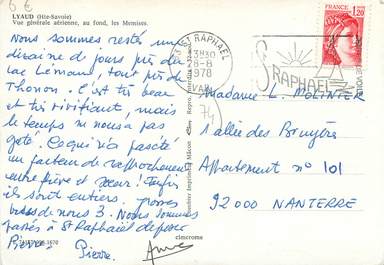 6 €
LYAUD (Hte-Savoie)
Vue générale aérienne, au fond, les Memises.
Nous sommes restés une
dizaine de jours près du
lac Léman, tout près de
Thonon. C'est très beau
et très vivifiant, mais
le temps ne nous a pas
gâté. Ce qui n'a pas été
un facteur de rapprochement
entre frère et sœur! Enfin
ils sont entiers. grosses
bises de nous 3. Nous sommes
passés à St Raphaël déposer
Pierre. Pierre.
Anne
74
ST RAPHAEL
18H30
28-8
1978
VAR
ST RAPHAEL
FRANCE
1,20
Madame L. MOLINIER
1 allée des Bruyères
Appartement n° 101
92000 NANTERRE
Combier Imprimeur Mâcon
Repro. Interdite
cimcrome